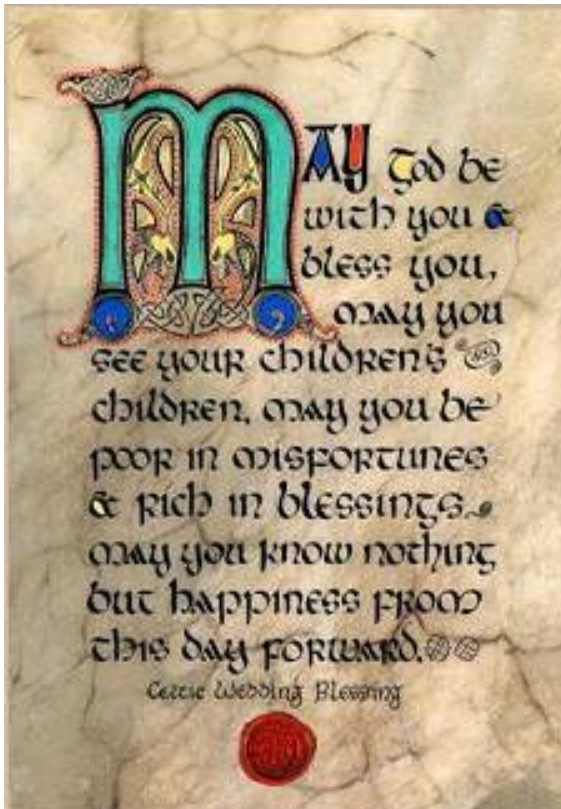 MAY God be
with you &
bless you,
may you
see your children's
children, may you be
poor in misfortunes
& rich in blessings
may you know nothing
but happiness from
this day forward.
Celtic Wedding Blessing